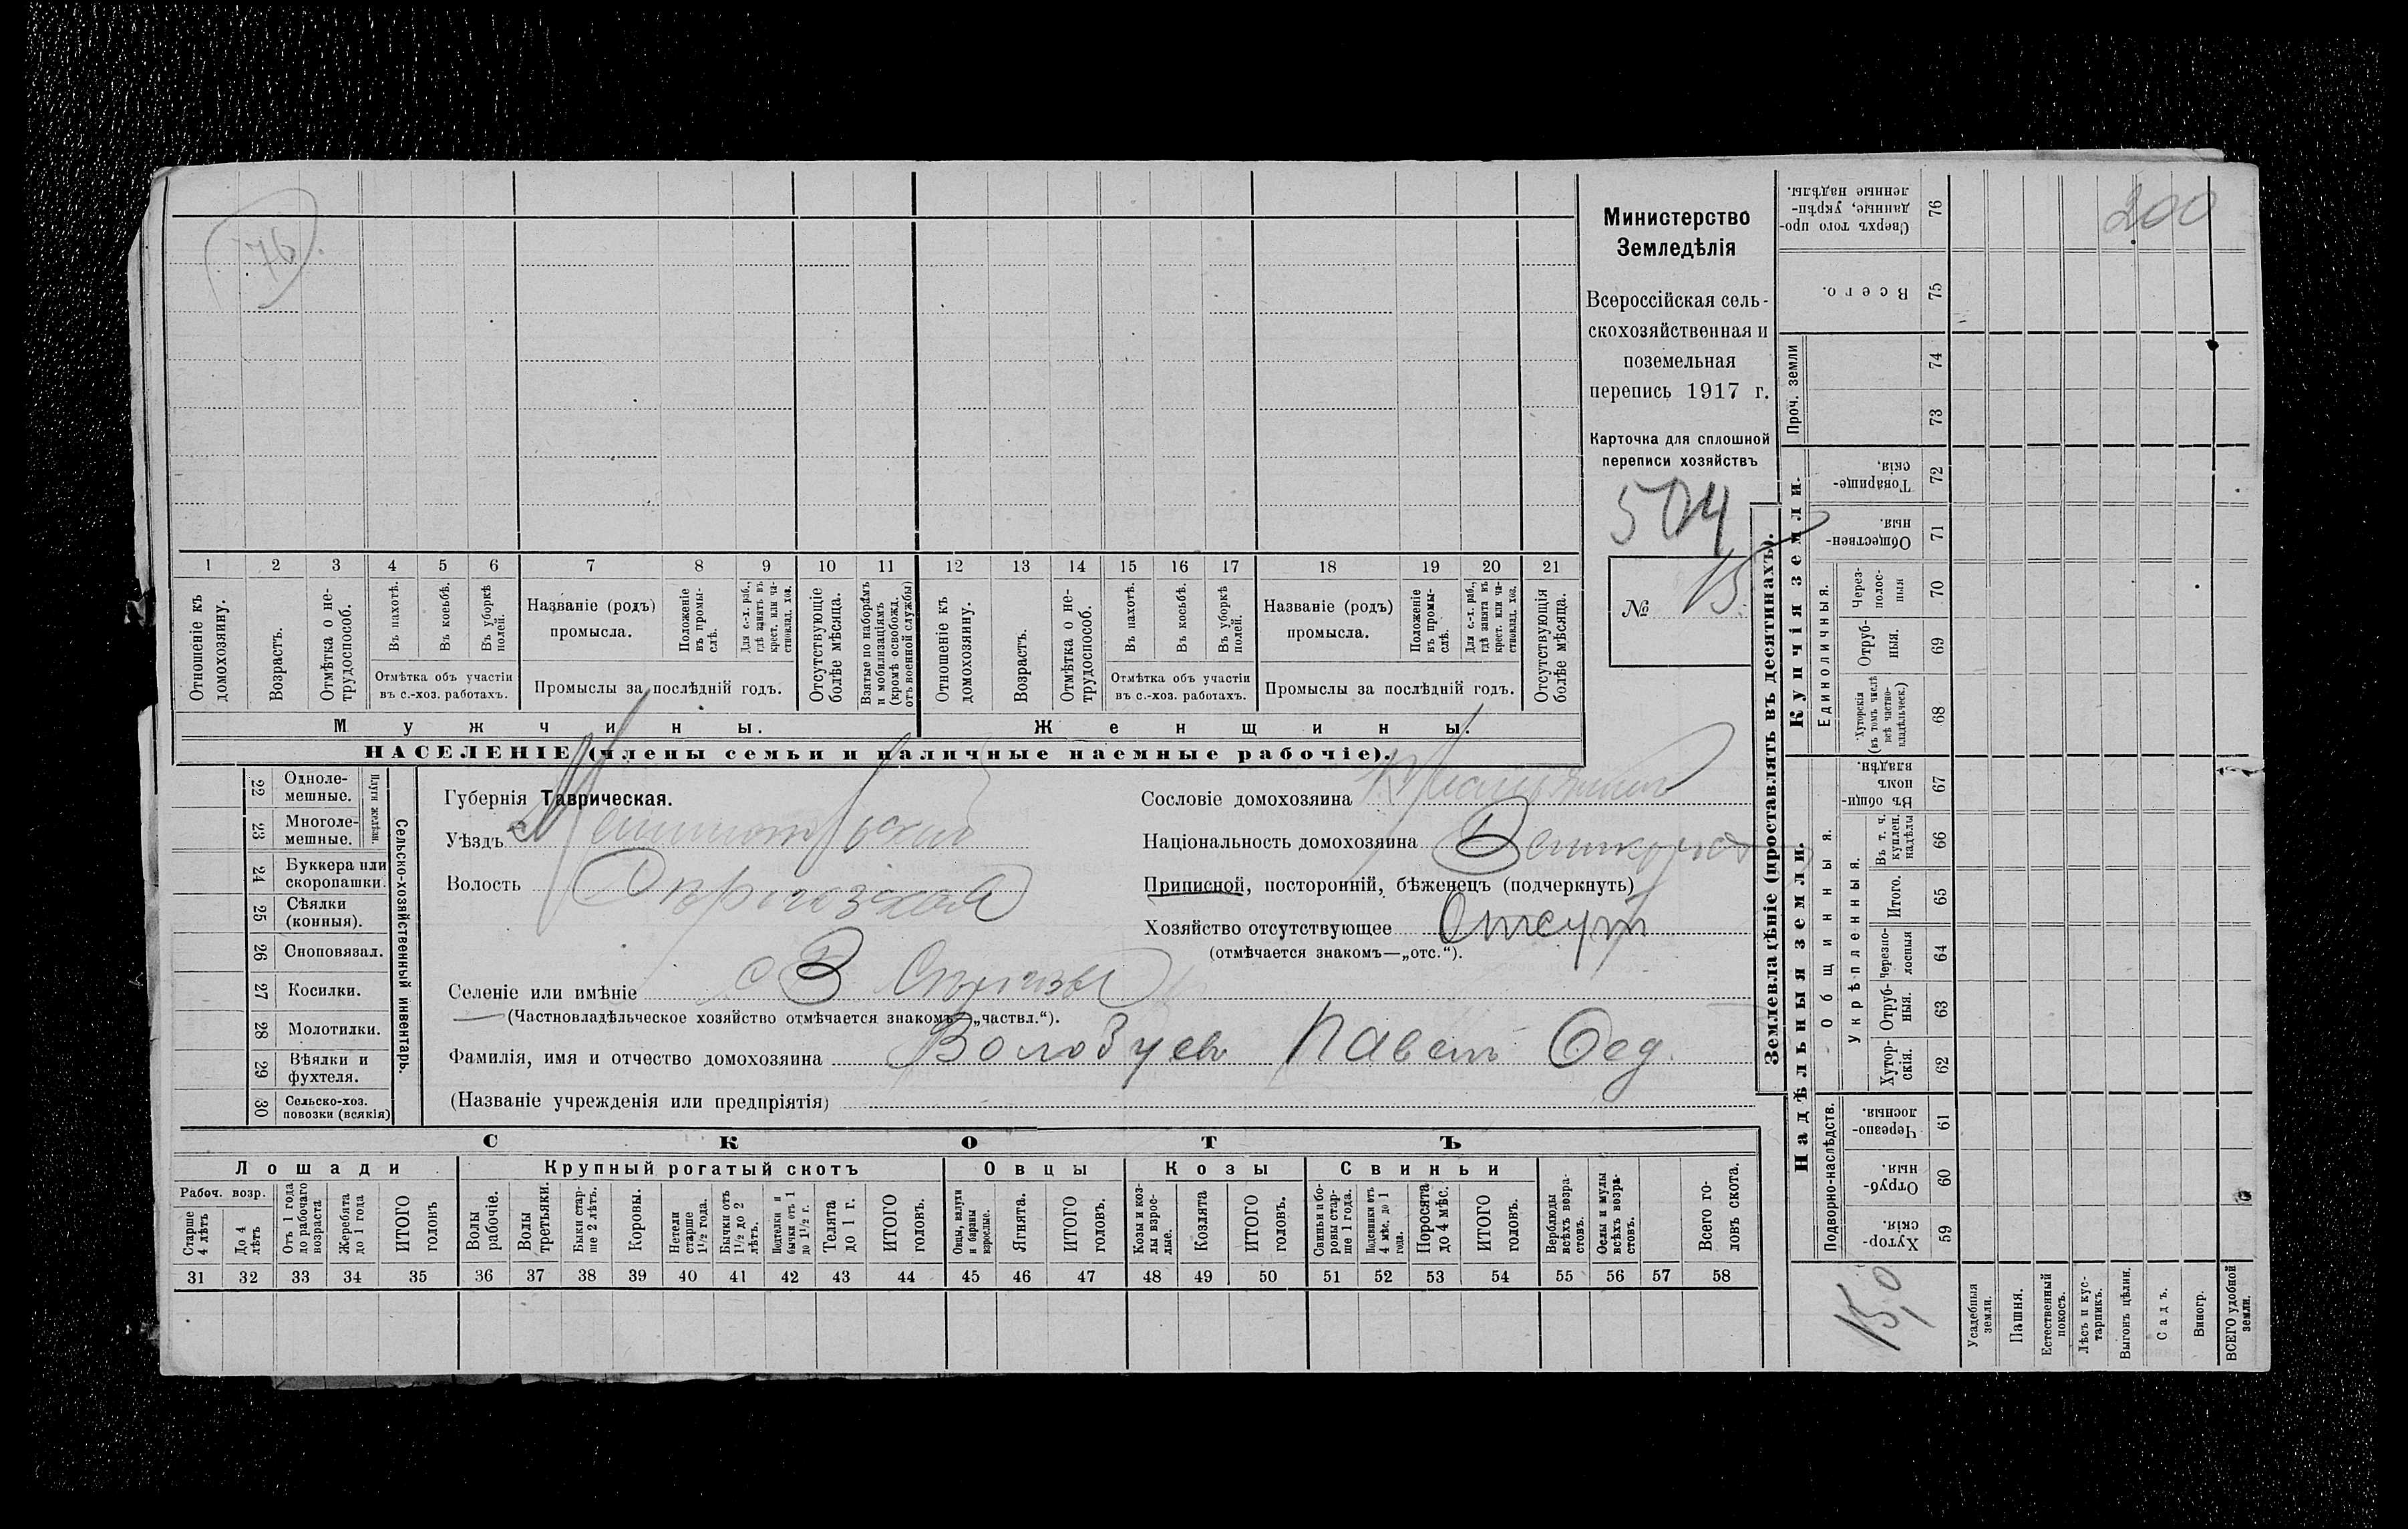 76
Министерство
Земледѣлія
Всероссійская сель-
скохозяйственная и
поземельная
перепись 1917 г.
Карточка для сплошной
переписи хозяйствъ
504
№ 15
1 2 3 4 5 6 7 8 9 10 11 12 13 14 15 16 17 18 19 20 21
Отношеніе къ домохозяину.
Возрастъ.
Отмѣтка о не-трудоспособ.
Въ пахотѣ.
Въ косьбѣ.
Въ уборкѣ полей.
Отмѣтка объ участіи
въ с.-хоз. работахъ.
Названіе (родъ)
промысла.
Положеніе въ промы-слѣ.
Для с.-х. раб., гдѣ занятъ въ крест. или ча-стновлад. хоз.
Промыслы за послѣдній годъ.
Отсутствующіе болѣе мѣсяца.
Взятые по наборамъ и мобилизаціямъ (кромѣ освобожд. отъ военной службы)
Отношеніе къ домохозяину.
Возрастъ.
Отмѣтка о не-трудоспособ.
Въ пахотѣ.
Въ косьбѣ.
Въ уборкѣ полей.
Отмѣтка объ участіи
въ с.-хоз. работахъ.
Названіе (родъ)
промысла.
Положеніе въ промы-слѣ.
Для с.-х. раб., гдѣ занята въ крест. или ча-стновлад. хоз.
Промыслы за послѣдній годъ.
Отсутствующія болѣе мѣсяца.
Мужчины. Женщины.
НАСЕЛЕНІЕ (члены семьи и наличные наемные рабочіе).
22 Одноле-мешные.
23 Многоле-мешные.
Плуги желѣзн.
24 Буккера или скоропашки.
25 Сѣялки (конныя).
26 Сноповязал.
27 Косилки.
28 Молотилки.
29 Вѣялки и фухтеля.
30 Сельско-хоз. повозки (всякія)
Сельско-хозяйственный инвентарь.
Губернія Таврическая.
Уѣздъ Мелитопольскій
Волость
Сословіе домохозяина
Національность домохозяина Великоросс
Приписной, посторонній, бѣженецъ (подчеркнуть)
Хозяйство отсутствующее Отсут
(отмѣчается знакомъ—„отс.“).
Селеніе или имѣніе с В
(Частновладѣльческое хозяйство отмѣчается знакомъ „частвл.“).
Фамилія, имя и отчество домохозяина Волобуевъ Павелъ Фед.
(Названіе учрежденія или предпріятія)
СКОТЪ
Лошади Крупный рогатый скотъ Овцы Козы Свиньи
Рабоч. возр.
Старше 4 лѣтъ
До 4 лѣтъ
Отъ 1 года до рабочаго возраста
Жеребята до 1 года
ИТОГО головъ
Волы рабочіе.
Волы третьяки.
Быки стар-ше 2 лѣтъ.
Коровы.
Нетели старше 1½ года.
Бычки отъ 1½ до 2 лѣтъ.
Подтелки и бычки отъ 1 до 1½ г.
Телята до 1 г.
ИТОГО головъ.
Овцы, валухи и бараны взрослые.
Ягнята.
ИТОГО головъ.
Козы и коз-лы взрос-лые.
Козлята
ИТОГО головъ.
Свиньи и бо-ровы стар-ше 1 года.
Подсвинки отъ 4 мѣс. до 1 года.
Поросята до 4 мѣс.
ИТОГО головъ.
Верблюды всѣхъ возра-стовъ.
Ослы и мулы всѣхъ возра-стовъ.
Всего го-ловъ скота.
31 32 33 34 35 36 37 38 39 40 41 42 43 44 45 46 47 48 49 50 51 52 53 54 55 56 57 58
Землевладѣніе (проставлять въ десятинахъ).
Купчія земли.
Надѣльныя земли.
Сверхъ того про-данные, укрѣп-ленные надѣлы. 76
200
Всего. 75
Проч. земли
74
73
Товарище-скія, 72
Обществен-ныя. 71
Единоличныя.
Через-полос-ныя 70
Отруб-ныя. 69
Хуторскія (въ томъ числѣ всѣ частно-владѣльческ.) 68
Общинныя.
Въ общи-номъ владѣн. 67
Укрѣпленныя.
Въ т. ч. куплен. надѣлы 66
Итого. 65
Черезпо-лосныя 64
Отруб-ныя. 63
Хутор-скія. 62
Подворно-наслѣдств.
Черезпо-лосныя. 61
Отруб-ныя. 60
Хутор-скія. 59
15,0
Усадебныя земли.
Пашня.
Естественный покосъ.
Лѣсъ и кус-тарникъ.
Выгонъ цѣлин.
Садъ.
Виногр.
ВСЕГО удобной земли.